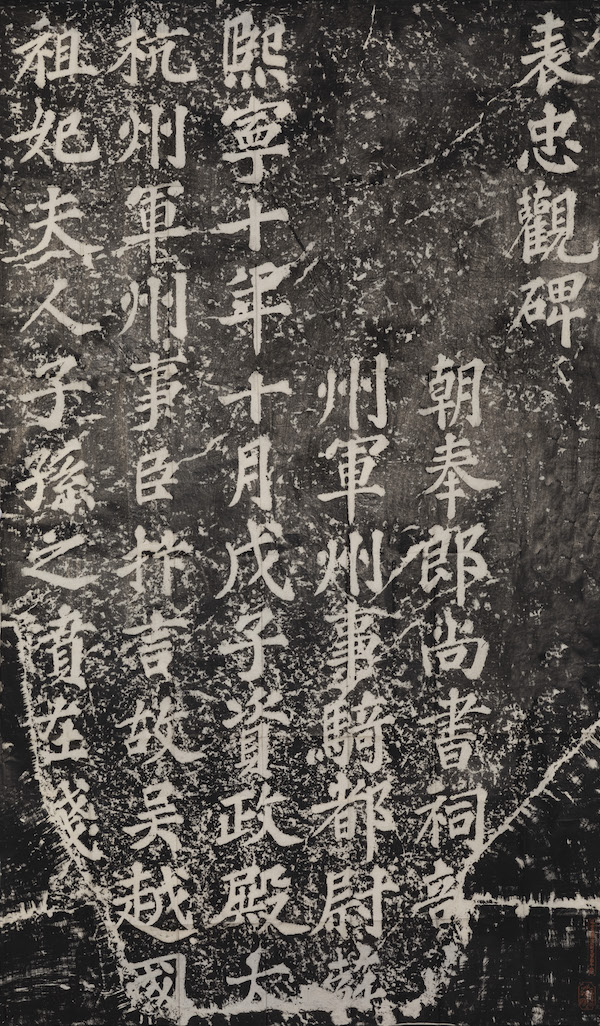 表忠觀碑
朝奉郎尚書祠部
州軍州事騎都尉蘇
熙寧十年十月戊子資政殿大
杭州軍州事臣抃言故吳越國
祖妃夫人子孫之墳在錢